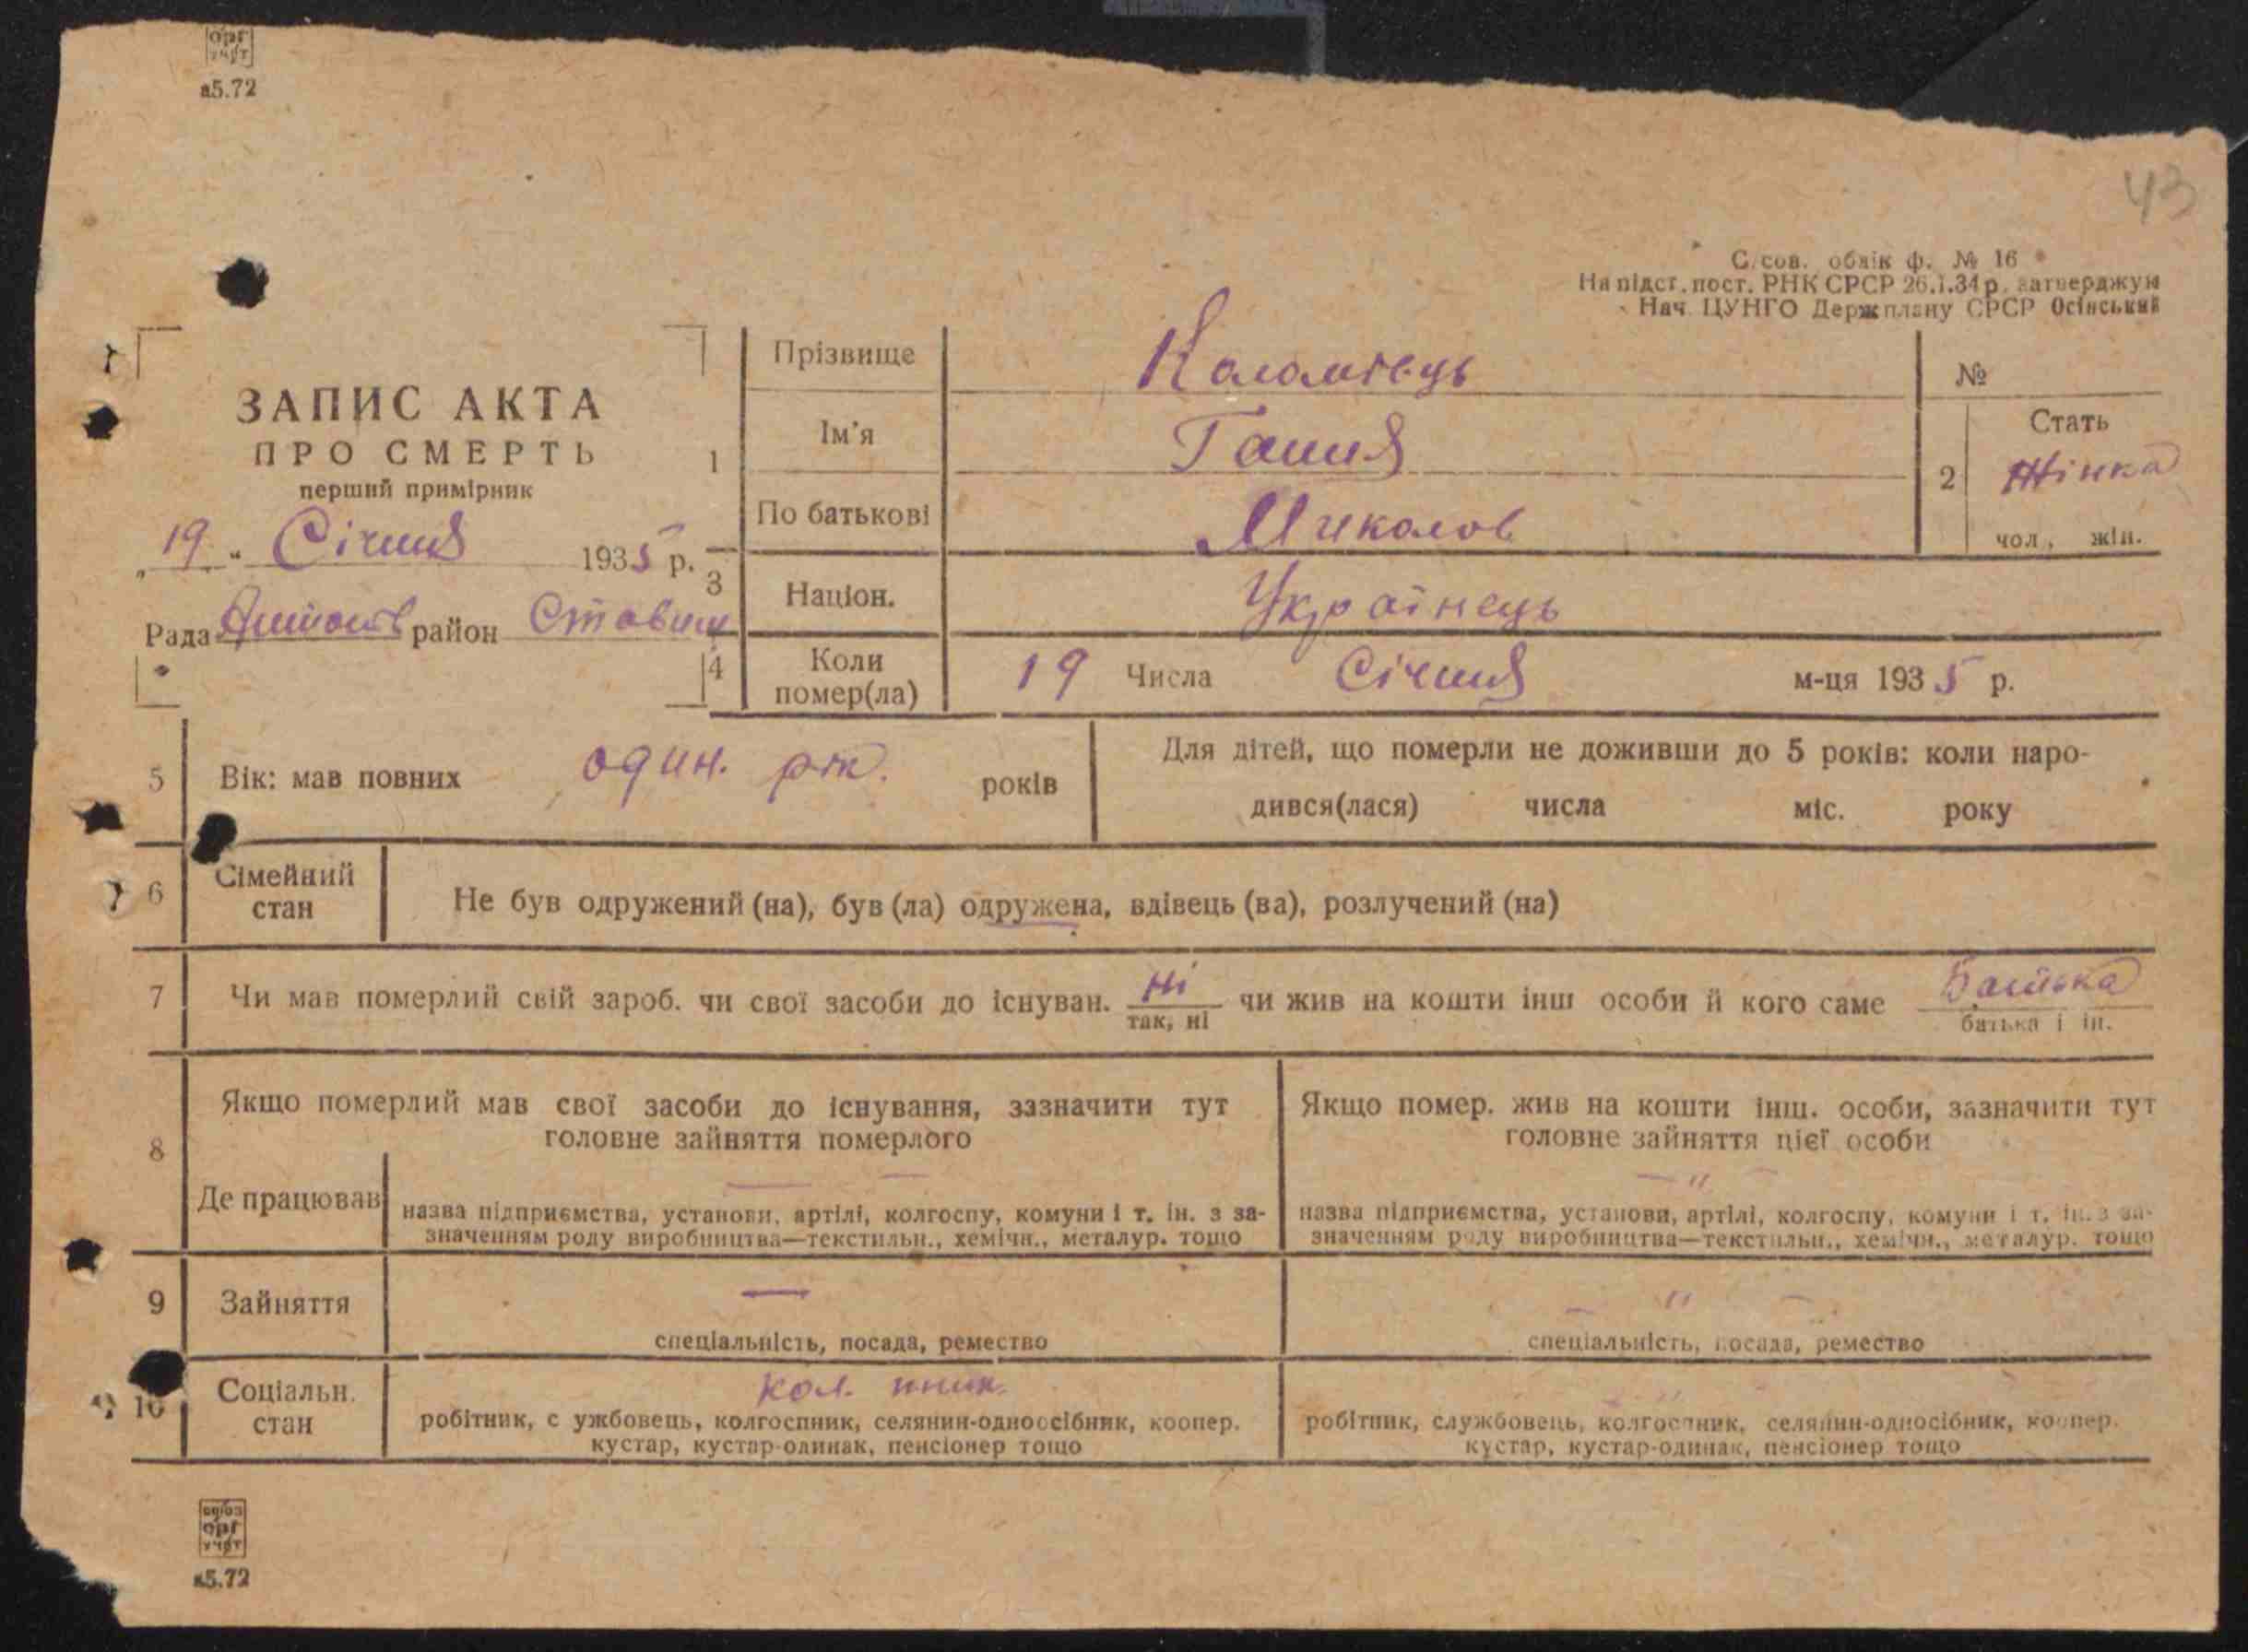 орг
учёт
а5.72
43
С/сов. облік ф. № 16
На підст. пост. РНК СРСР 26.І.34 р. затверджую
Нач. ЦУНГО Держплану СРСР Осінський
ЗАПИС АКТА
ПРО СМЕРТЬ
перший примірник
„19“ Січня 1935 р.
Рада район Ставищ
1
Прізвище Коломієць
Ім'я Гання
По батькові Миколов
№
2
Стать
Жінка
чол., жін.
3 Націон. Українець
4 Коли помер(ла) 19 Числа Січня м-ця 1935 р.
5 Вік: мав повних один. рік. років
Для дітей, що померли не доживши до 5 років: коли наро-
дився(лася) числа міс. року
6 Сімейний стан
Не був одружений (на), був (ла) одружена, вдівець (ва), розлучений (на)
7 Чи мав померлий свій зароб. чи свої засоби до існуван. Ні чи жив на кошти інш особи й кого саме Батька
так, ні батька і ін.
8
Якщо померлий мав свої засоби до існування, зазначити тут
головне зайняття померлого
Якщо помер. жив на кошти інш. особи, зазначити тут
головне зайняття цієї особи
Де працював
—
назва підприємства, установи, артілі, колгоспу, комуни і т. ін. з за-
значенням роду виробництва—текстильн., хемічн., металур. тощо
— " —
назва підприємства, установи, артілі, колгоспу, комуни і т. ін. з за-
значенням роду виробництва—текстильн., хемічн., металур. тощо
9 Зайняття
—
спеціальність, посада, ремество
— " —
спеціальність, посада, ремество
10 Соціальн. стан
кол.
робітник, с ужбовець, колгоспник, селянин-одноосібник, коопер.
кустар, кустар-одинак, пенсіонер тощо
робітник, службовець, колгоспник, селянин-односібник, коопер.
кустар, кустар-одинак, пенсіонер тощо
союз
орг
учёт
а5.72